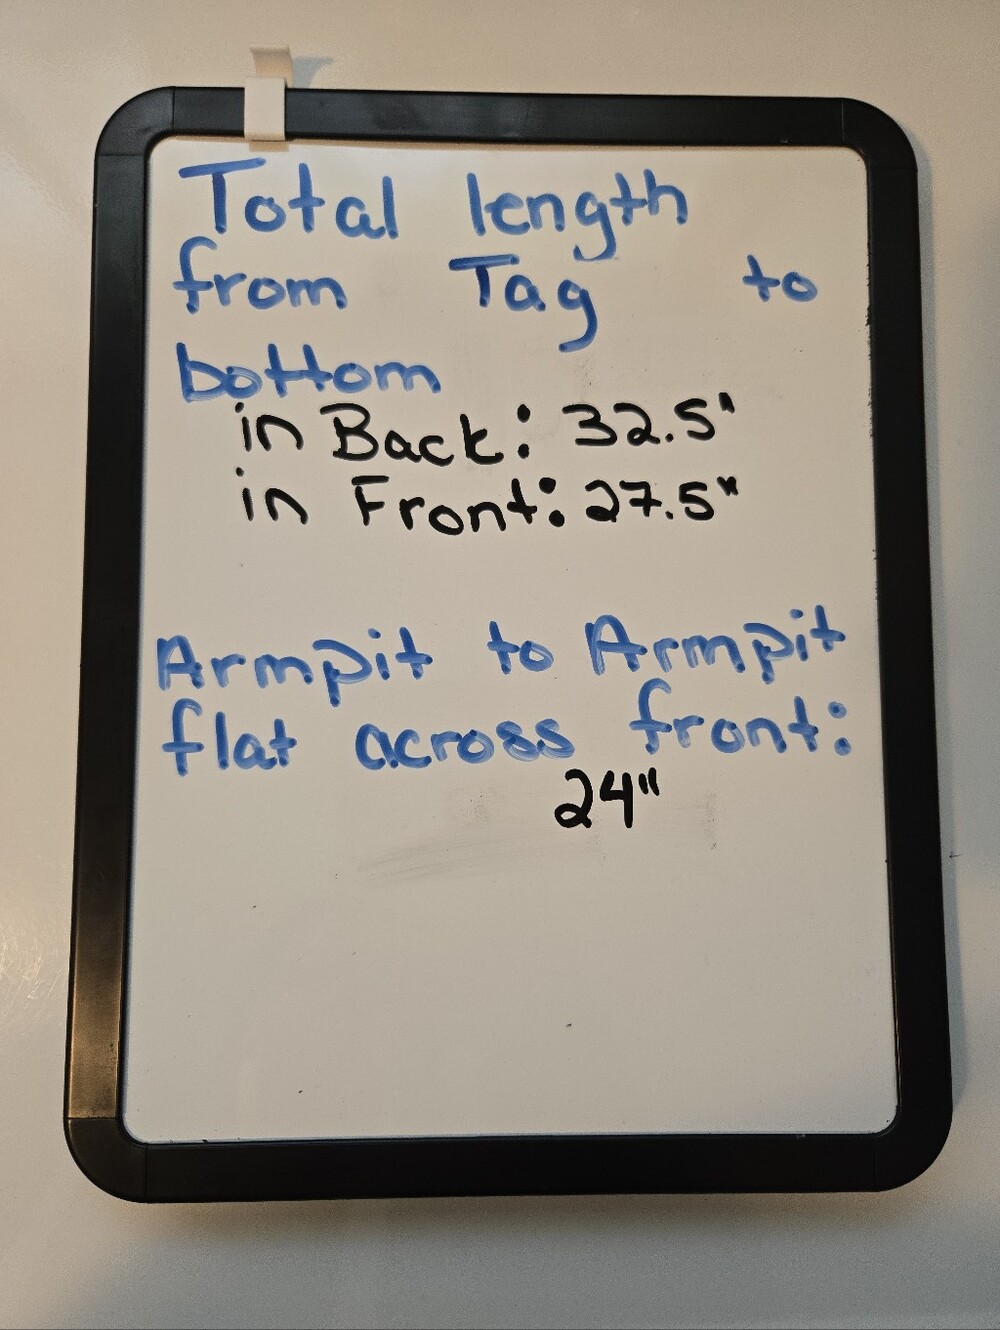 Total length
from Tag to
bottom
in Back: 32.5"
in Front: 27.5"
Armpit to Armpit
flat across front:
24"